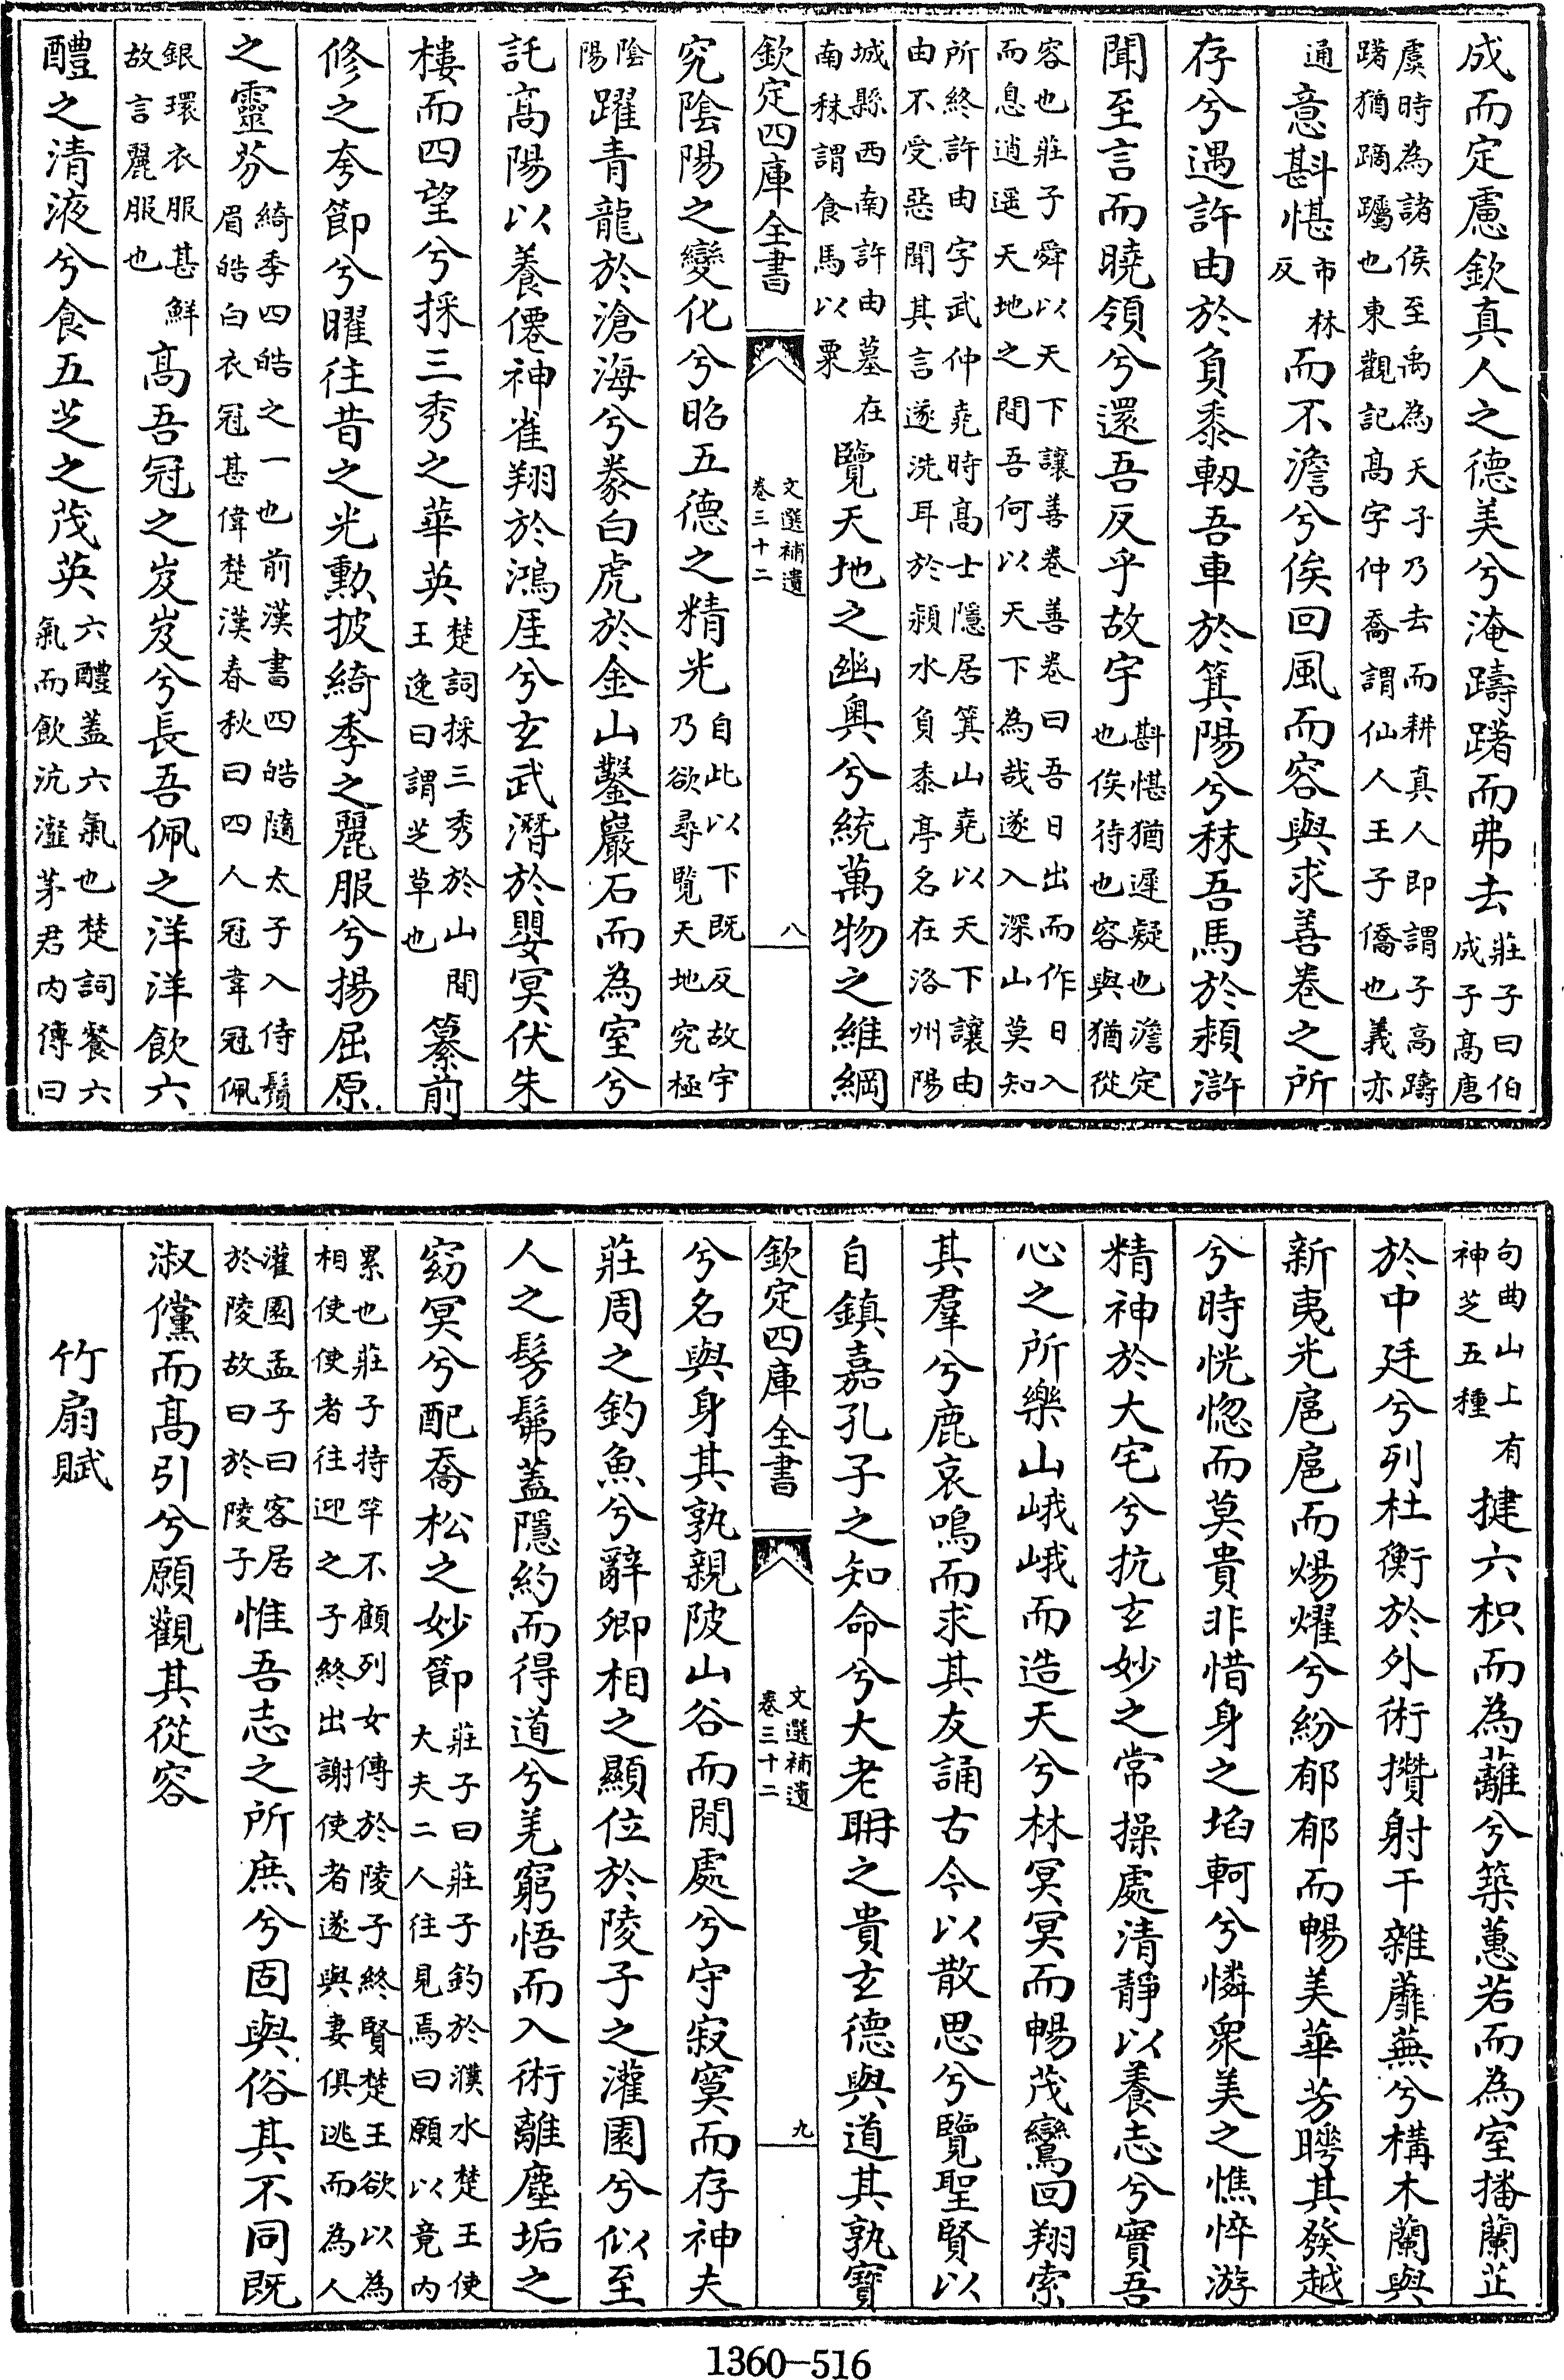 成而定慮欽真人之德美兮淹躊躇而弗去莊子曰伯成子髙唐
虞時為諸侯至禹為天子乃去而耕真人即謂子高躊躇猶蹢躅也東觀記髙字仲喬謂仙人王子僑也義亦
通意斟愖市林反而不澹兮俟回風而容與求善卷之所
存兮遇許由於負黍軔吾車於箕陽兮秣吾馬於潁滸
聞至言而曉領兮還吾反乎故宇斟愖猶遲疑也澹定也俟待也容與猶從
容也莊子舜以天下讓善卷善卷曰吾日出而作日入而息逍遥天地之間吾何以天下為哉遂入深山莫知
所終許由字武仲堯時髙士隱居箕山堯以天下讓由由不受惡聞其言遂洗耳於潁水負黍亭名在洛州陽
城縣西南許由墓在南秣謂食馬以粟覽天地之幽奥兮統萬物之維綱
欽定四庫全書
文選補遺
卷三十二
八
究隂陽之變化兮昭五德之精光自此以下既反故宇乃欲尋覽天地究極
隂陽躍青龍於滄海兮豢白虎於金山鑿巖石而為室兮
託髙陽以養僊神雀翔於鴻厓兮玄武潛於嬰冥伏朱
樓而四望兮採三秀之華英楚詞採三秀於山間王逸曰謂芝草也纂前
修之夸節兮曜往昔之光勲披綺季之麗服兮揚屈原
之靈芬綺季四皓之一也前漢書四皓隨太子入侍鬚眉皓白衣冠甚偉楚漢春秋曰四人冠韋冠佩
銀環衣服甚鮮故言麗服也髙吾冠之岌岌兮長吾佩之洋洋飲六
醴之清液兮食五芝之茂英六醴蓋六氣也楚詞餐六氣而飲沆瀣茅君内傳曰
句曲山上有神芝五種揵六枳而為蘺兮築蕙若而為室播蘭芷
於中廷兮列杜衡於外術攢射干雜蘼蕪兮構木蘭與
新夷光扈扈而煬燿兮紛郁郁而暢美華芳曄其發越
兮時恍惚而莫貴非惜身之埳軻兮憐衆美之憔悴游
精神於大宅兮抗玄妙之常操處清靜以養志兮實吾
心之所樂山峨峨而造天兮林冥冥而暢茂鸞回翔索
其羣兮鹿哀鳴而求其友誦古今以散思兮覽聖賢以
自鎮嘉孔子之知命兮大老耼之貴玄德與道其孰寳
欽定四庫全書
文選補遺
卷三十二
九
兮名與身其孰親陂山谷而閒處兮守寂寞而存神夫
莊周之釣魚兮辭卿相之顯位於陵子之灌園兮似至
人之髣髴蓋隱約而得道兮羌窮悟而入術離塵垢之
窈冥兮配喬松之妙節莊子曰莊子釣於濮水楚王使大夫二人往見焉曰願以竟内
累也莊子持竿不顧列女傳於陵子終賢楚王欲以為相使使者往迎之子終出謝使者遂與妻俱逃而為人
灌園孟子曰客居於陵故曰於陵子惟吾志之所庶兮固與俗其不同既
淑儻而髙引兮願觀其從容
竹扇賦
1360—516